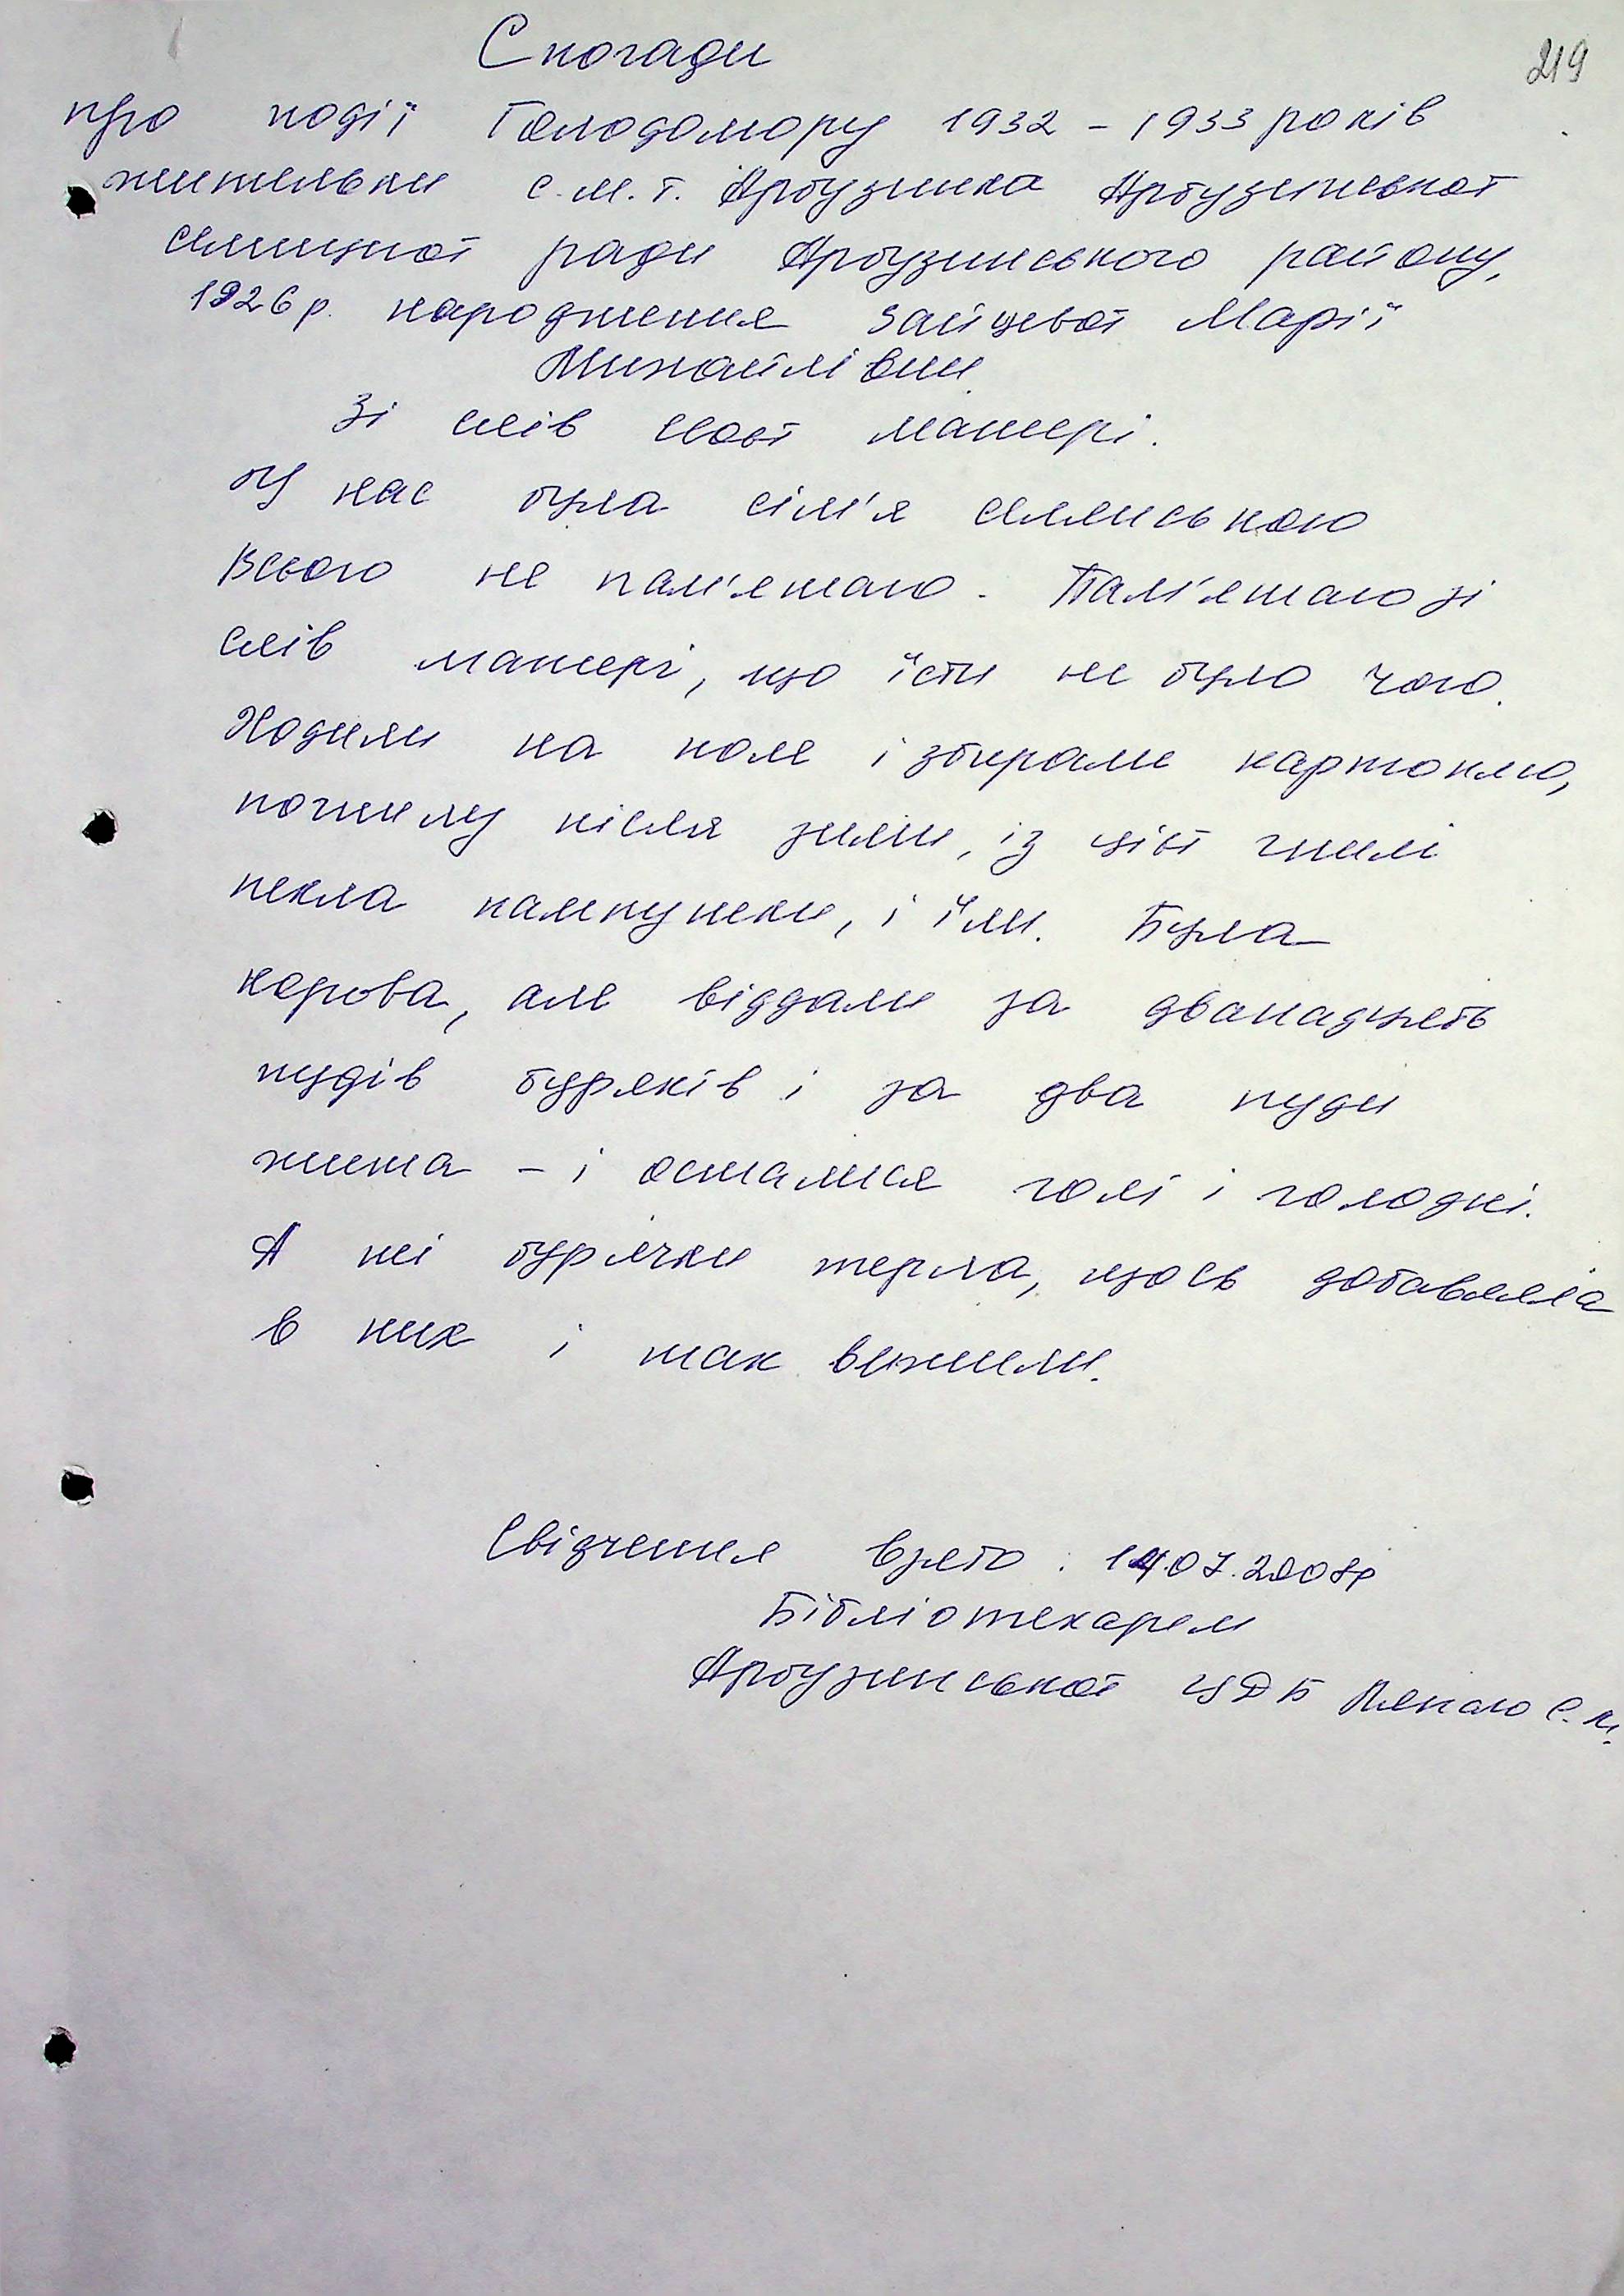 219
Спогади
про події Голодомору 1932 - 1933 років
жительки с.м.т. Арбузинка Арбузинської
селищної ради Арбузинського району,
1926 р. народження Зайцевої Марії
Михайлівни
Зі слів моєї матері.
У нас була сім'я селянською
Всього не пам'ятаю. Пам'ятаю зі
слів матері, що їсти не було чого.
Ходили на поле і збирали картоплю,
погнилу після зими, із цієї гнилі
пекла пампушки, і їли. Була
корова, але віддали за дванадцять
пудів буряків і за два пуди
жита - і осталися голі і голодні.
А ті бурячки терла, щось добавляла
в них і так вижили.
Свідчення взято: 14.07.2008р
Бібліотекарем
Арбузинської ЦДБ С.М.